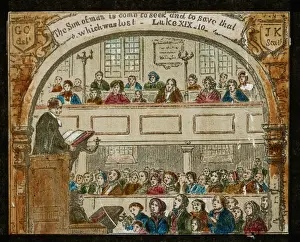 The Son of man is come to seek and to save that
which was lost - Luke XIX. 10.
GC
del.
JK
Sculp.